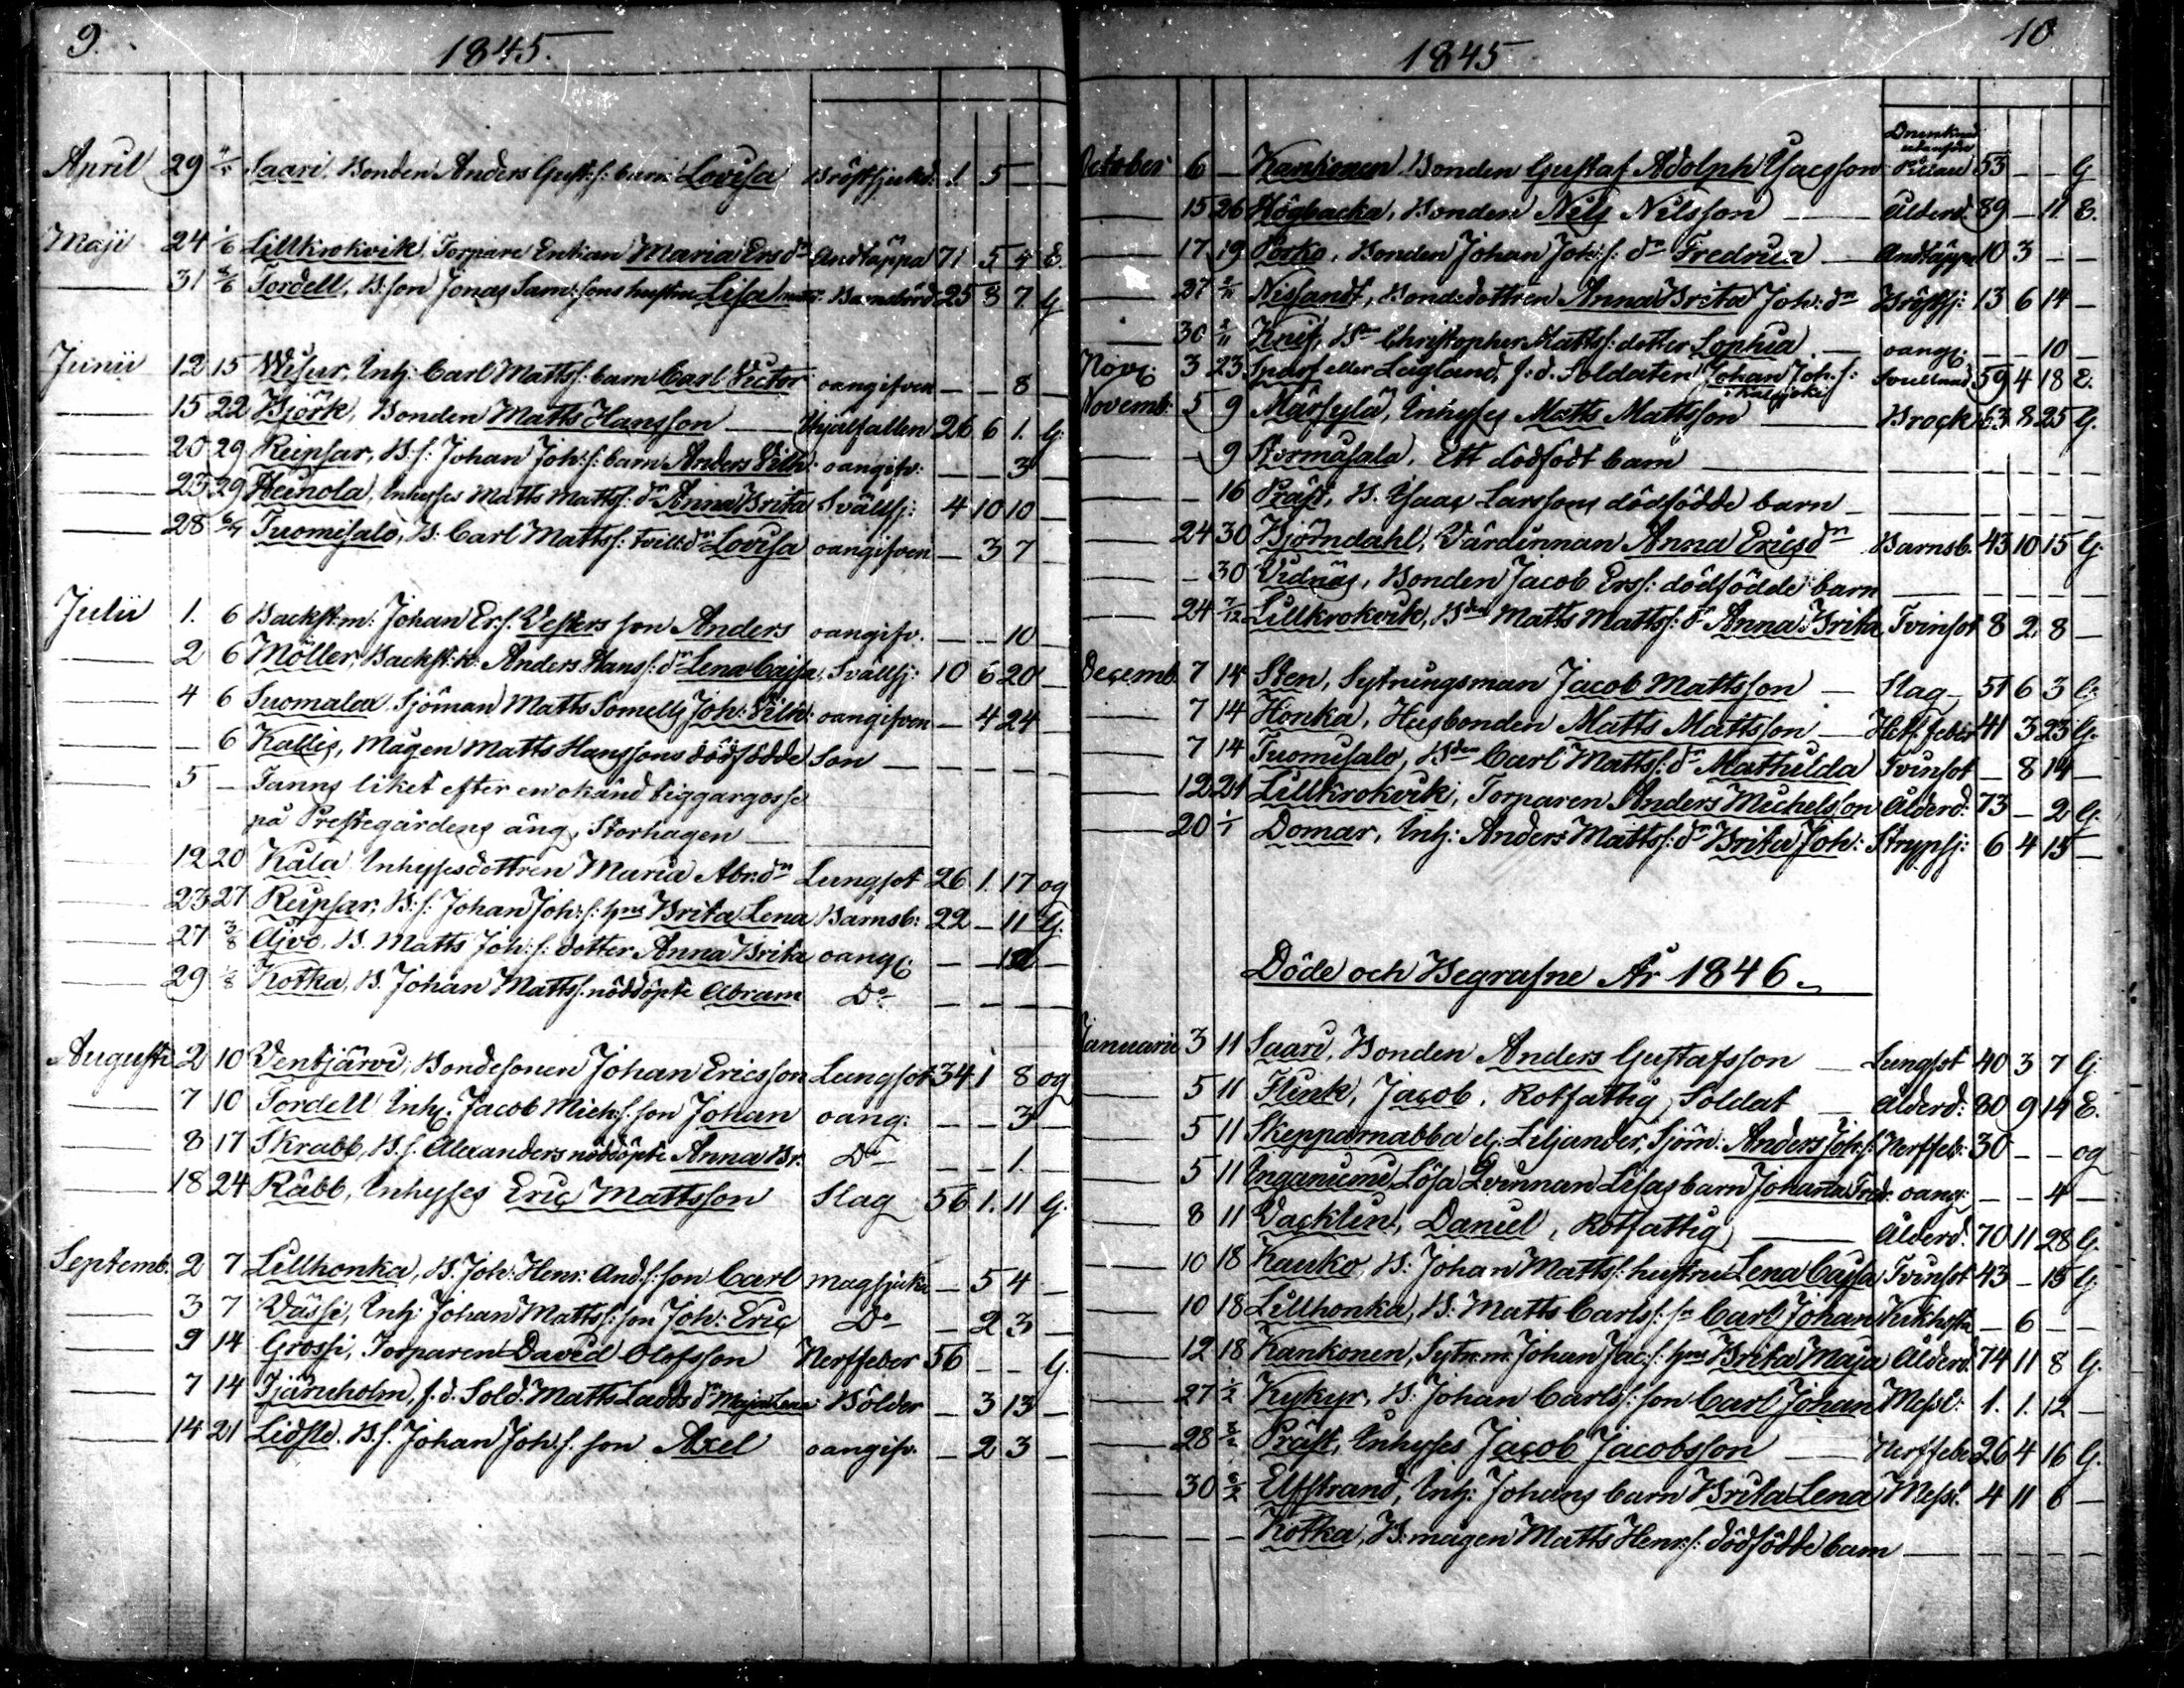 9.
1845.
April 29 4/5 Saari, Bonden Anders Gust:s: barn Lovisa Bröstsjukd: 1. 5 — —
Maji 24 1/6 Lillkrokvik, Torpare Enkan Maria Ersdr Andtäppa 71 5 4 E.
— 31 8/6 Tordell, B:son Jonas Sam:sons hustru Lisa Barnsbörd 25 8 7. G
Junii 12 15 Wisur, Inh: Carl Mattss: barn Carl Victor oangifven — — 8 —
— 15 22 Björk, Bonden Matts Hansson — Ihjälfallen 26 6 1. G.
— 20 29 Reipsar, B.s: Johan Joh:s: barn Anders Vilh: oangifv: — — 3 —
— 23 29 Heinola, Inhyses Matts Mattss: dr Anna Brita Svällsj: 4 10 10 —
— 28 6/7 Tuomisalo, B: Carl Mattss: tvill:dr Lovisa oangifven — 3 7 —
Julii 1. 6 Backst:m: Johan Ers: Vesters son Anders oangifv. — — 10 —
— 2 6 Möller, Backst:k: Anders Hans:s: dr Lena Cajsa, Svällsj: 10 6 20 —
— 4 6 Suomala, Sjöman Matts Somells Joh: Vilh: oangifven — 4 24 —
— — 6 Kallis, Mågen Matts Hanssons dödfödde Son — — — — —
— 5 — Fanns liket efter en okänd tiggargosse
på Prestegårdens äng, Storhagen —
— 12 20 Kåla Inhysesdottren Maria Abr:dr Lungsot 26 1. 17 og
— 23 27 Reipsar, B:s: Johan Joh:s: hus Brita Lena Barnsb: 22 — 11 G.
— 27 3/8 Ajvo, B. Matts Joh:s: dotter Anna Brita oang: — — 12 —
— 29 /8 Kotka, B. Johan Mattss: nöddöpte Abram Do — — — —
Augusti 2 10 Ventjärvi, Bondesonen Johan Ericsson Lungsot 34 1 8 og
— 7 10 Tordell Inh: Jacob Mich:s: son Johan oang: — — 3 —
— 8 17 Skrabb, B.s. Alexanders nöddöpte Anna Br. Do — — 1. —
— 18 24 Räbb, Inhyses Eric Mattsson Slag 56 1. 11 G.
Septemb. 2 7 Lillhonka, B. Joh: Henr: And:s: son Carl magsjuka — 5 4 —
— 3 7 Vässi, Inh: Johan Mattss: son Joh: Eric Do — 2 3 —
— 9 14 Grossi, Torparen David Olofsson Nerffeber 56 — — G.
— 7 14 Tjäruholm, f.d. Sold: Matts Ladds dr Maja Lena Bölder — 3 13 —
— 14 21 Lidsle. B.s. Johan Joh:s. son Axel oangifv. — 2 3 —
10
1845
October 6 — Kankonen Bonden Gustaf Adolph Isacsson Drunknad 53 — — G
— 15 26 Högbacka, Bonden Nils Nilsson — Ålderd. 89 — 11 E.
— 17 19 Porko, Bonden Johan Joh:s: dr Fredrica — Andtäppa 10 3 — —
— 27 2/11 Nissandt, Bondedottren Anna Brita Joh:dr Bröstsj: 13 6 14 —
— 30 2/11 Knif, Bn Christopher Mattss: dotter Sophia — oang: — — 10 —
Nov: 3 23 eller Lugland, f:d. Soldaten Johan Joh:s: Svullnad 59 4 18 E.
Novemb. 5 9 Märsylä, Inhyses Matts Mattsson — Brock 63 8 25 G.
— — 9 Stormåsala, Ett dödfödt barn — — — — —
— — 16 Präst, B. Isaac Larssons dödfödde barn — — — — —
— 24 30 Björndahl, Värdinnan Anna Ericsdr Barnsb. 43 10 15 G.
— — 30 Vidnäs, Bonden Jacob Erss: dödfödde barn — — — — —
— 24 7/12 Lillkrokvik, Bden Matts Mattss: dr Anna Brita Tvinsot 8 2 8 —
Decemb. 7 14 Sten, Sytningsman Jacob Mattsson — Slag — 51 6 3 G.
— 7 14 Honka, Husbonden Matts Mattsson — Het. feber 41 3 23 G.
— 7 14 Tuomisalo, Bden Carl Mattss: dr Mathilda Tvinsot — 8 14 —
— 12 21 Lillkrokvik, Torparen Anders Michelsson Ålderd: 73 — 2 G.
— 20 1/1 Domar, Inh: Anders Mattss: dr Brita Joh: Strypsj: 6 4 15 —
Döde och Begrafne År 1846.
Januarii 3 11 Saari, Bonden Anders Gustafsson — Lungsot 40 3 7 G.
— 5 11 Flink, Jacob, Rotfattig, Soldat — Ålderd: 80 9 14 E.
— 5 11 Skepparnabba el: Liljander, Sjöm: Anders Joh:s: Nerffeb: 30 — — og
— 5 11 Inganiemi Lösa Qvinnan Lisas barn Johanna Fredr: oang: — — 4 —
— 8 11 Vacklin, Daniel, Rotfattig — Ålderd. 70 11 28 G.
— 10 18 Kauko, B: Johan Mattss: hustru Lena Cajsa Tvinsot 43 — 15 G.
— 10 18 Lillhonka, B: Matts Carlss: sn Carl Johan Kikhosta — 6 — —
— 12 18 Kankonen, Sytn:m: Johan Jac:s: hus Brita Maja Ålderd. 74 11 8 G.
— 27 1/2 Kykyr, B: Johan Carlss: son Carl Johan Messl: 1. 1. 12 —
— 28 3/2 Präst, Inhyses Jacob Jacobsson — Nerffeber 26 4 16 G.
— 30 8/2 Elfstrand, Inh: Johans barn Brita Lena Messl. 4 11 6 —
— — — Kotka, B: mågen Matts Henr:s: dödfödde barn — — — — —